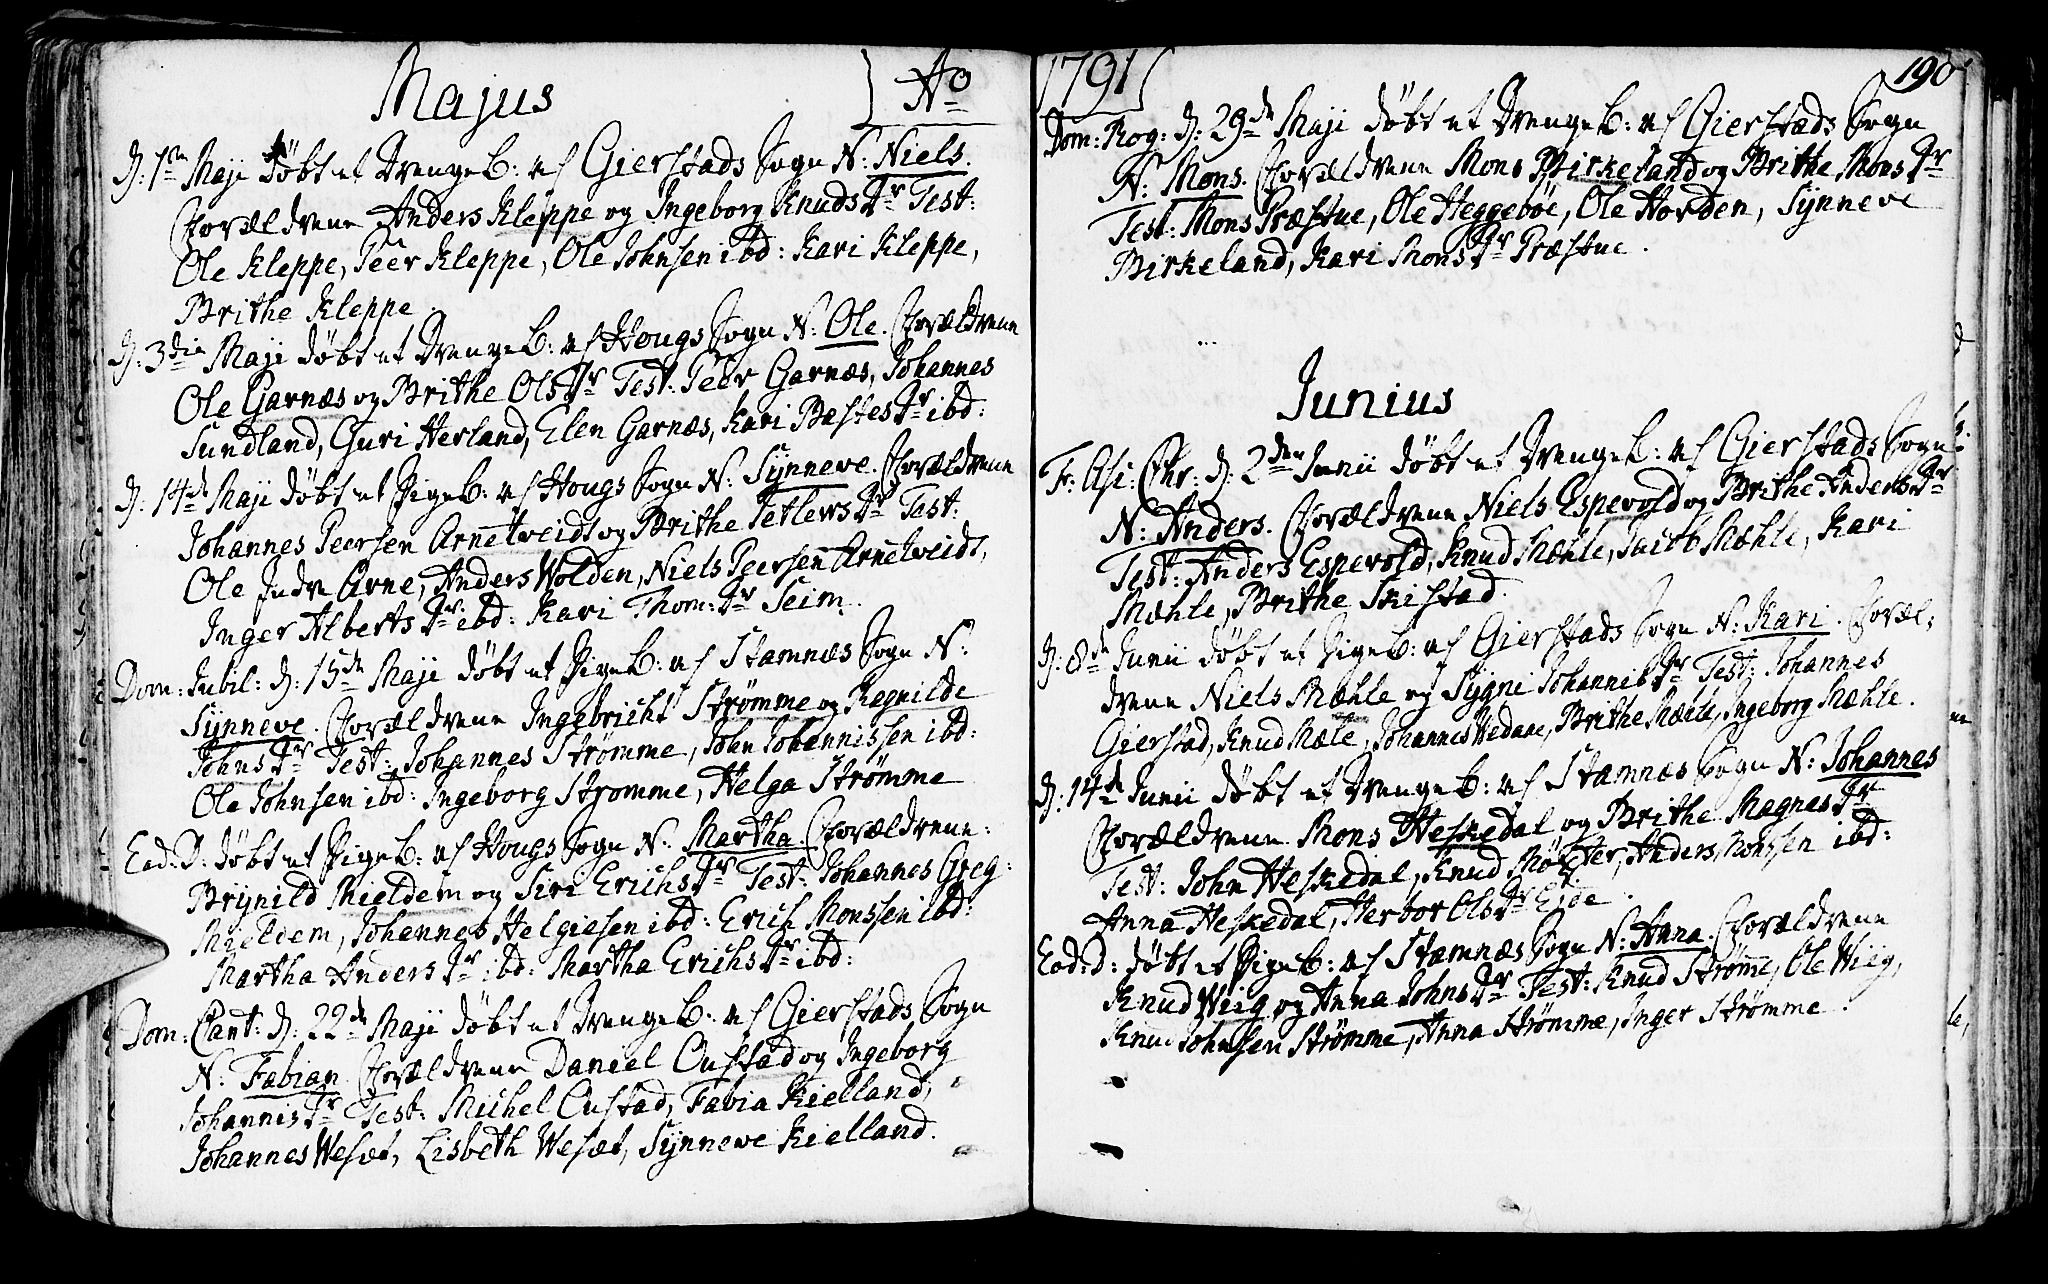 Majus Ao
d: 1ste Maji döbt et Drenge B: af Gierstads Sogn N: Niels.
Forældrene Anders Kleppe og Ingeborg Knuds Dr Test:
Ole Kleppe, Peer Kleppe, Ole Johnsen ibd: Kari Kleppe,
Brithe Kleppe.
d: 3die Maji döbt et Drenge B: af Hougs Sogn N: Ole. Forældrene
Ole Garnæs og Brithe Ols Dr Test: Peer Garnæs, Johannes
Sundland, Guri Herland, Elen Garnæs, Kari Bastes Dr ibd:
d: 14de Maji döbt et Pige B: af Hougs Sogn N: Synneve. Forældrene
Johannes Peersen Arnetveidt og Brithe Detlews Dr Test:
Ole Indre Arne, Anders Wolden, Niels Peersen Arnetveidt,
Inger Alberts Dr ibd: Kari Thom: Dr Seim.
Dom: Jubil: d: 15de Maji döbt et Pige B: af Stamnæs Sogn N:
Synneve. Forældrene Ingebricht Strømme og Regnilde
Johns Dr Test: Johannes Strømme, John Johannissen ibd:
Ole Johnsen ibd: Ingeborg Strømme, Helga Strømme
Ead: D: döbt et Pige B: af Hougs Sogn N: Martha. Forældrene:
Brynild Mieldem og Siri Erichs Dr Test: Johannes Greg:
Mieldem, Johannes Helgiesen ibd: Erich Monssen ibd:
Martha Anders Dr ibd: Martha Erichs Dr ibd:
Dom: Cant: d: 22de Maji döbt et Drenge B: af Gierstads Sogn
N: Fabian. Forældrene Daniel Custad og Ingeborg
Johannis Dr Test: Michel Custad, Fabia Kielland,
Johannes Wesæt, Lisbeth Wesæt, Synneve Kielland.
1791 190
Dom: Rog: d: 29de Maji döbt et Drenge B: af Gierstads Sogn
N: Mons. Forældrene Mons Birkeland og Brithe Mons Dr
Test: Mons Præstue, Ole Heggeböe, Ole Horden, Synneve
Birkeland, Kari Mons Dr Præstue.
Junius
Fr: Asc: Chr: d: 2den Junii döbt et Drenge B: af Gierstads Sogn
N: Anders. Forældrene Niels Espevold og Brithe Anders Dr
Test: Anders Espevold, Knud Mæhle, Jacob Mæhle, Kari
Mæhle, Brithe Skistad.
d: 8de Junii döbt et Pige B: af Gierstads Sogn N: Kari. Foræl:
drene Niels Mæhle og Sygni Johannis Dr Test: Johannes
Gierstad, Knud Mæle, Johannes Vedaae, Brithe Mæhle, Ingeborg Mæhle.
d: 14de Junii döbt et Drenge B: af Stamnæs Sogn N: Johannes
Forældrene Mons Heskedal og Brithe Magnes Dr
Test: John Heskedal, Knud Møster, Anders Monssen ibd:
Anna Heskedal, Herbor Ols Dr Eide.
Ead: D: döbt et Pige B: af Stamnæs Sogn N: Anna. Forældrene
Knud Wiig og Anna Johns Dr Test: Knud Strøme, Ole Wiig,
Knud Johnsen Strømme, Anna Strømme, Inger Strømme.